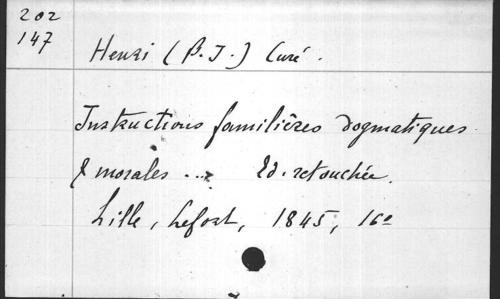 202
147
Henri (B. J.) Curé.
Instructions familières dogmatiques
& morales ... Ed. retouchée.
Lille, Lefort, 1845, 16º